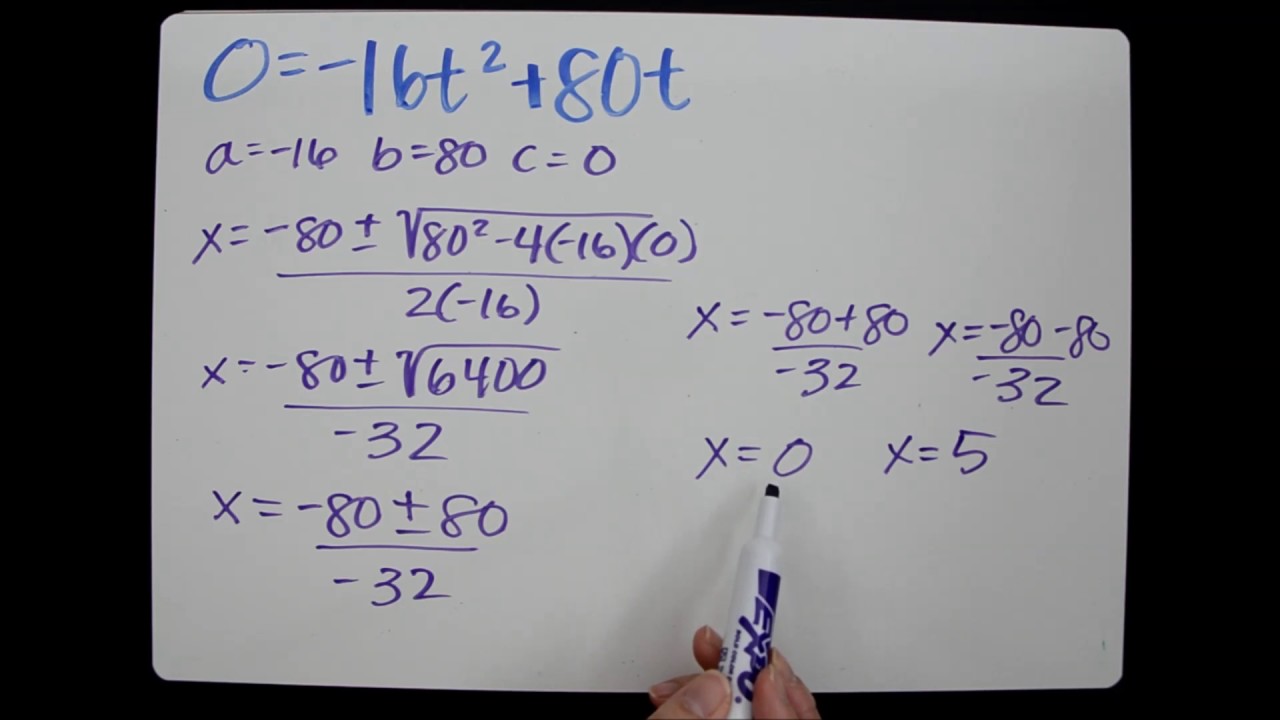 0=-16t²+80t
a=-16 b=80 c=0
x=-80±√80²-4(-16)(0)
2(-16)
x=-80±√6400
-32
x=-80±80
-32
x=-80+80 x=-80-80
-32 -32
x=0 x=5
EXPO